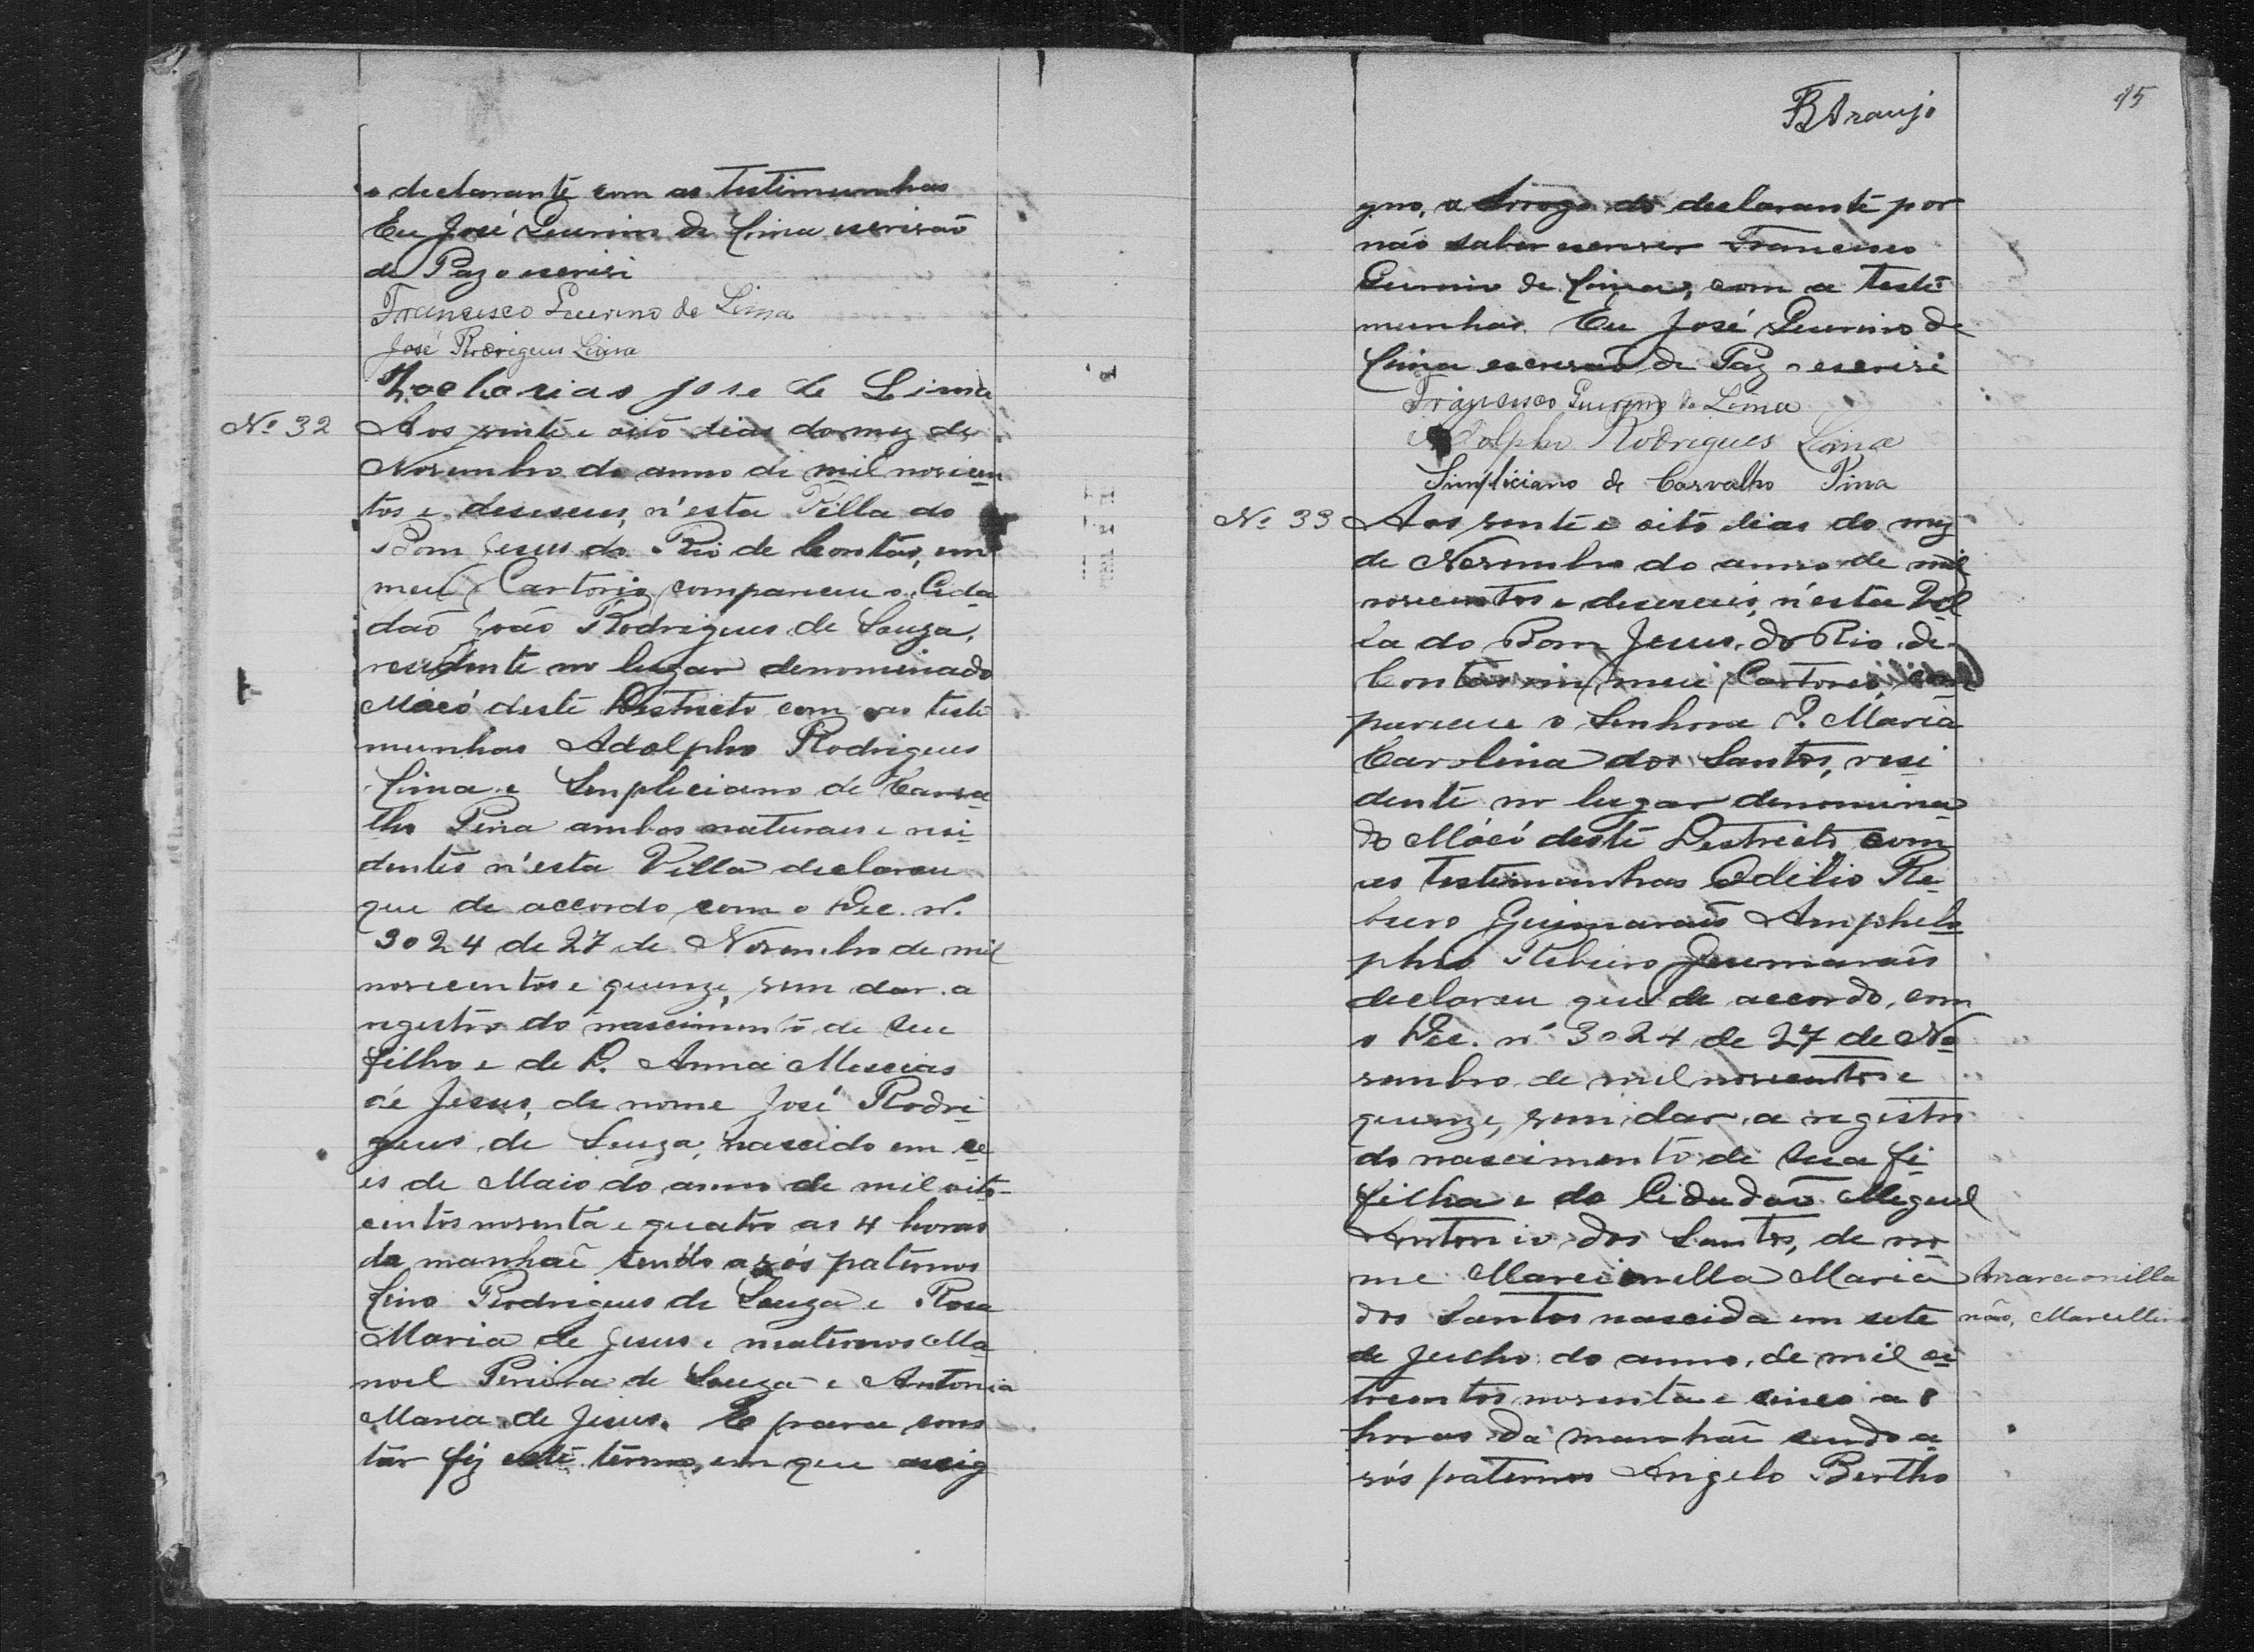 o declarante com as testimunhas
Eu José Guerino de Lima escrivaõ
de Paz o escrivi
Francisco Guerino de Lima
José Rodrigues Lima
Zacharias jose de Lima
Nº 32
Aos vinte e oitô dias do mez de
Novembro do anno de mil novicen
tos e deseseis, n'esta Villa do
Bom Jesus do Rio de Contas, em
meu Cartorio compareceu o Cida
daõ João Rodrigues de Souza,
residente no lugar denominado
Mócó deste Destricto com as teste
munhas Adolpho Rodrigues
Lima e Simpliciano de Carva
lho Pina ambos naturaes e resi
dentes n'esta Villa declarou
que de accordo com o Dec. nº
3024 de 27 de Novembro de mil
novecentos e quinze, vem dar a
registro do nascimento de seu
filho e de D. Anna Messias
de Jesus, de nome José Rodri
gues de Souza, nascido em se
is de Maio do anno de mil oito
centos noventa e quatro as 4 horas
da manhaẽ sendo avós paternos
Lino Rodrigues de Souza e Rosa
Maria de Jesus e maternos Ma
noel Pereira de Souza e Antonia
Maria de Jesus. E para cons
tar fiz este termo, em que assig
BAraujo
15
gno, a arrogo do declarante por
não saber escrever Francisco
Guerino de Lima, com a teste
munhas. Eu José Guerino de
Lima escrivaõ de Paz o escrivi
Francisco Guerino de Lima
Adolpho Rodrigues Lima
Simpliciano de Carvalho Pina
Nº 33
Aos vinte e oito dias do mez
de Novembro do anno de mil
novecentos e deseseis, n'esta Vil
la do Bom Jesus do Rio de
Contas em meu Cartorio, com
pareceu o Senhora D. Maria
Carolina dos Santos, resi
dente no lugar denomina
do Mócó deste Destricto, com
as testemunhas Odilio Ri
beiro Guimarães Amphilo
phio Ribeiro Guimarães
declarou que de accordo, com
o Dec. nº 3024 de 27 de No
vembro de mil novecentos e
quinze, vem dar a registro
do nascimento de sua fi
filha e do Cidadaõ Miguel
Antonio dos Santos, de no
me Marcionilla Maria
Marcionilla
dos Santos nascida em sete
não, Marcellina
de Julho do anno de mil oi
tocentos noventa e cinco as 8
horas da manhaẽ sendo a
vós paternos Angelo Bertho